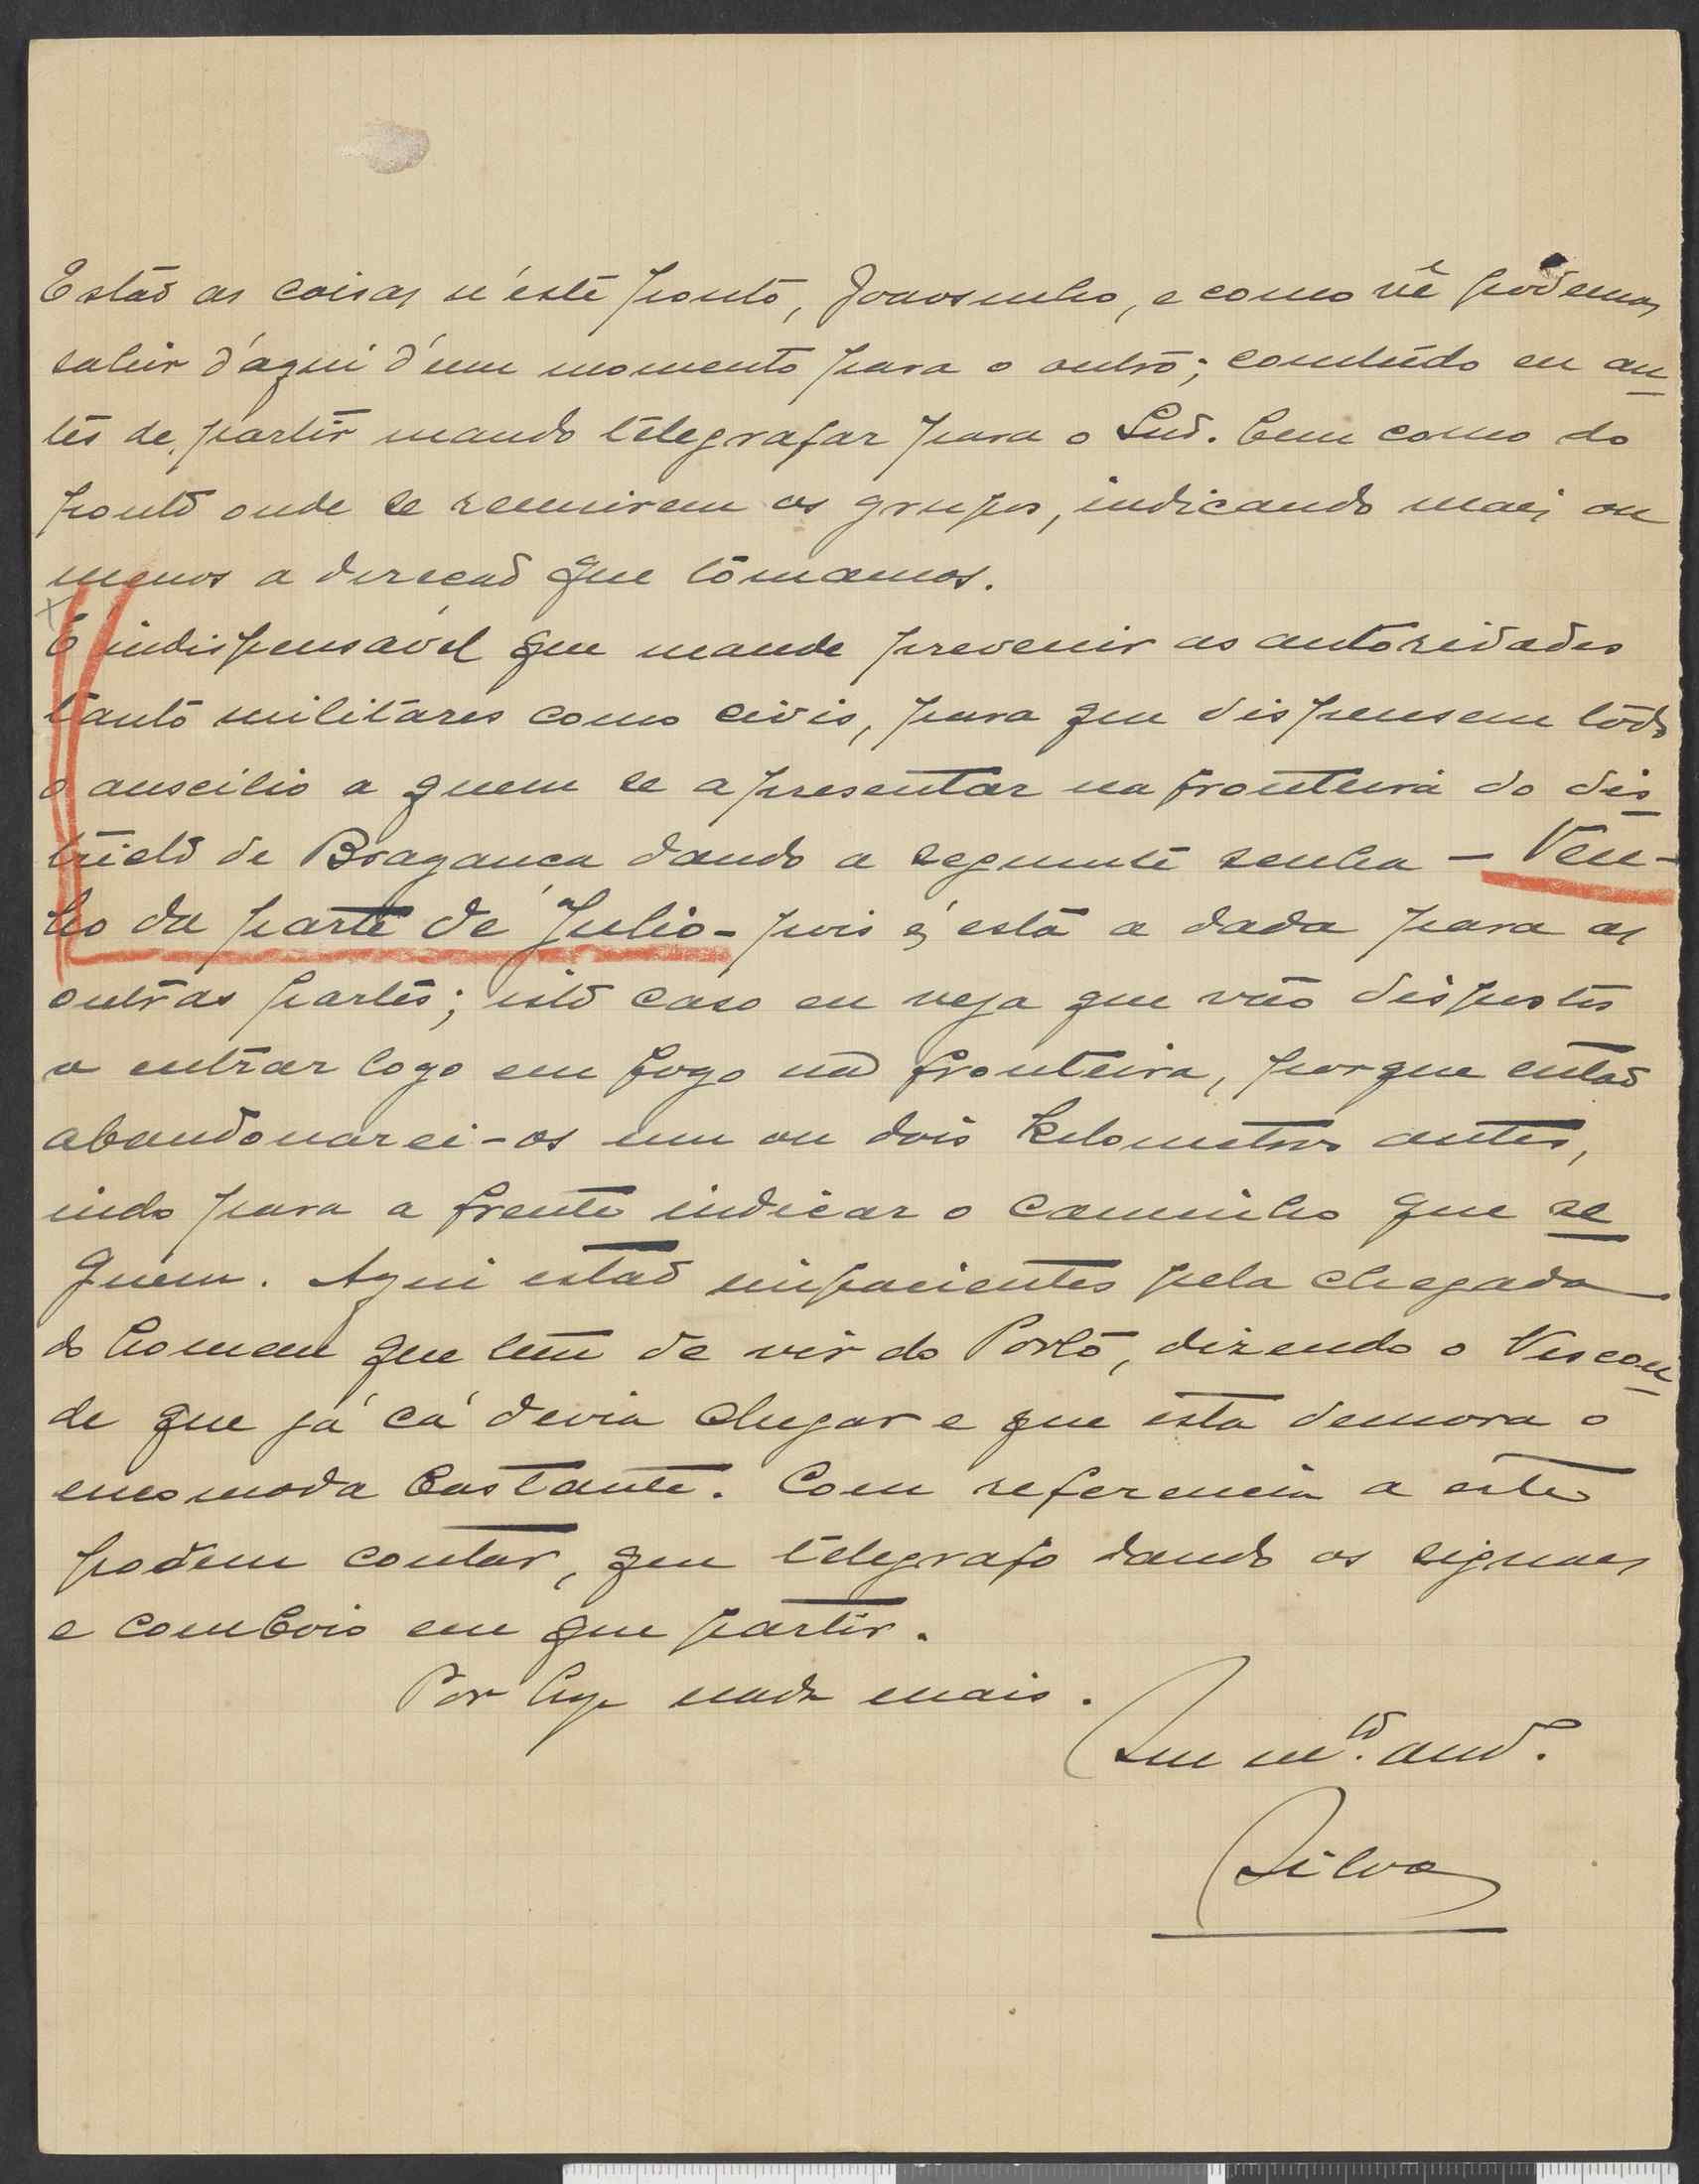 Estão as coisas n'este ponto, Joaosinho, e como vê podemos
sahir d'aqui d'um momento para o outro; comtúdo eu an
tes de partir mando telegrafar para o Lud. bem como do
ponto onde se reunirem os grupos, indicando mais ou
menos a direcão que tomamos.
É indispensavel que mande prevenir as autoridades
tanto militares como civis, para que dispensem todo
o auscilio a quem se apresentar na fronteira do dis
tricto de Bragança dando a seguinte senha – Ven-
ho da parte de Julio – pois é esta a dada para as
outras partes; isto caso eu veja que vão dispostos
a entrar logo em fogo na fronteira, porque então
abandonarei-os um ou dois kilometros antes,
indo para a frente indicar o caminho que se
guem. Aqui estão impacientes pela chegada
do homem que tem de vir do Porto, dizendo o Viscon
de que já cá devia chegar e que esta demora o
encomoda bastante. Com referencia a este
podem contar, que telegrafo dando os signaes
e comboio em que partir.
Por hoje nada mais.
Seu mto. amo.
Silva